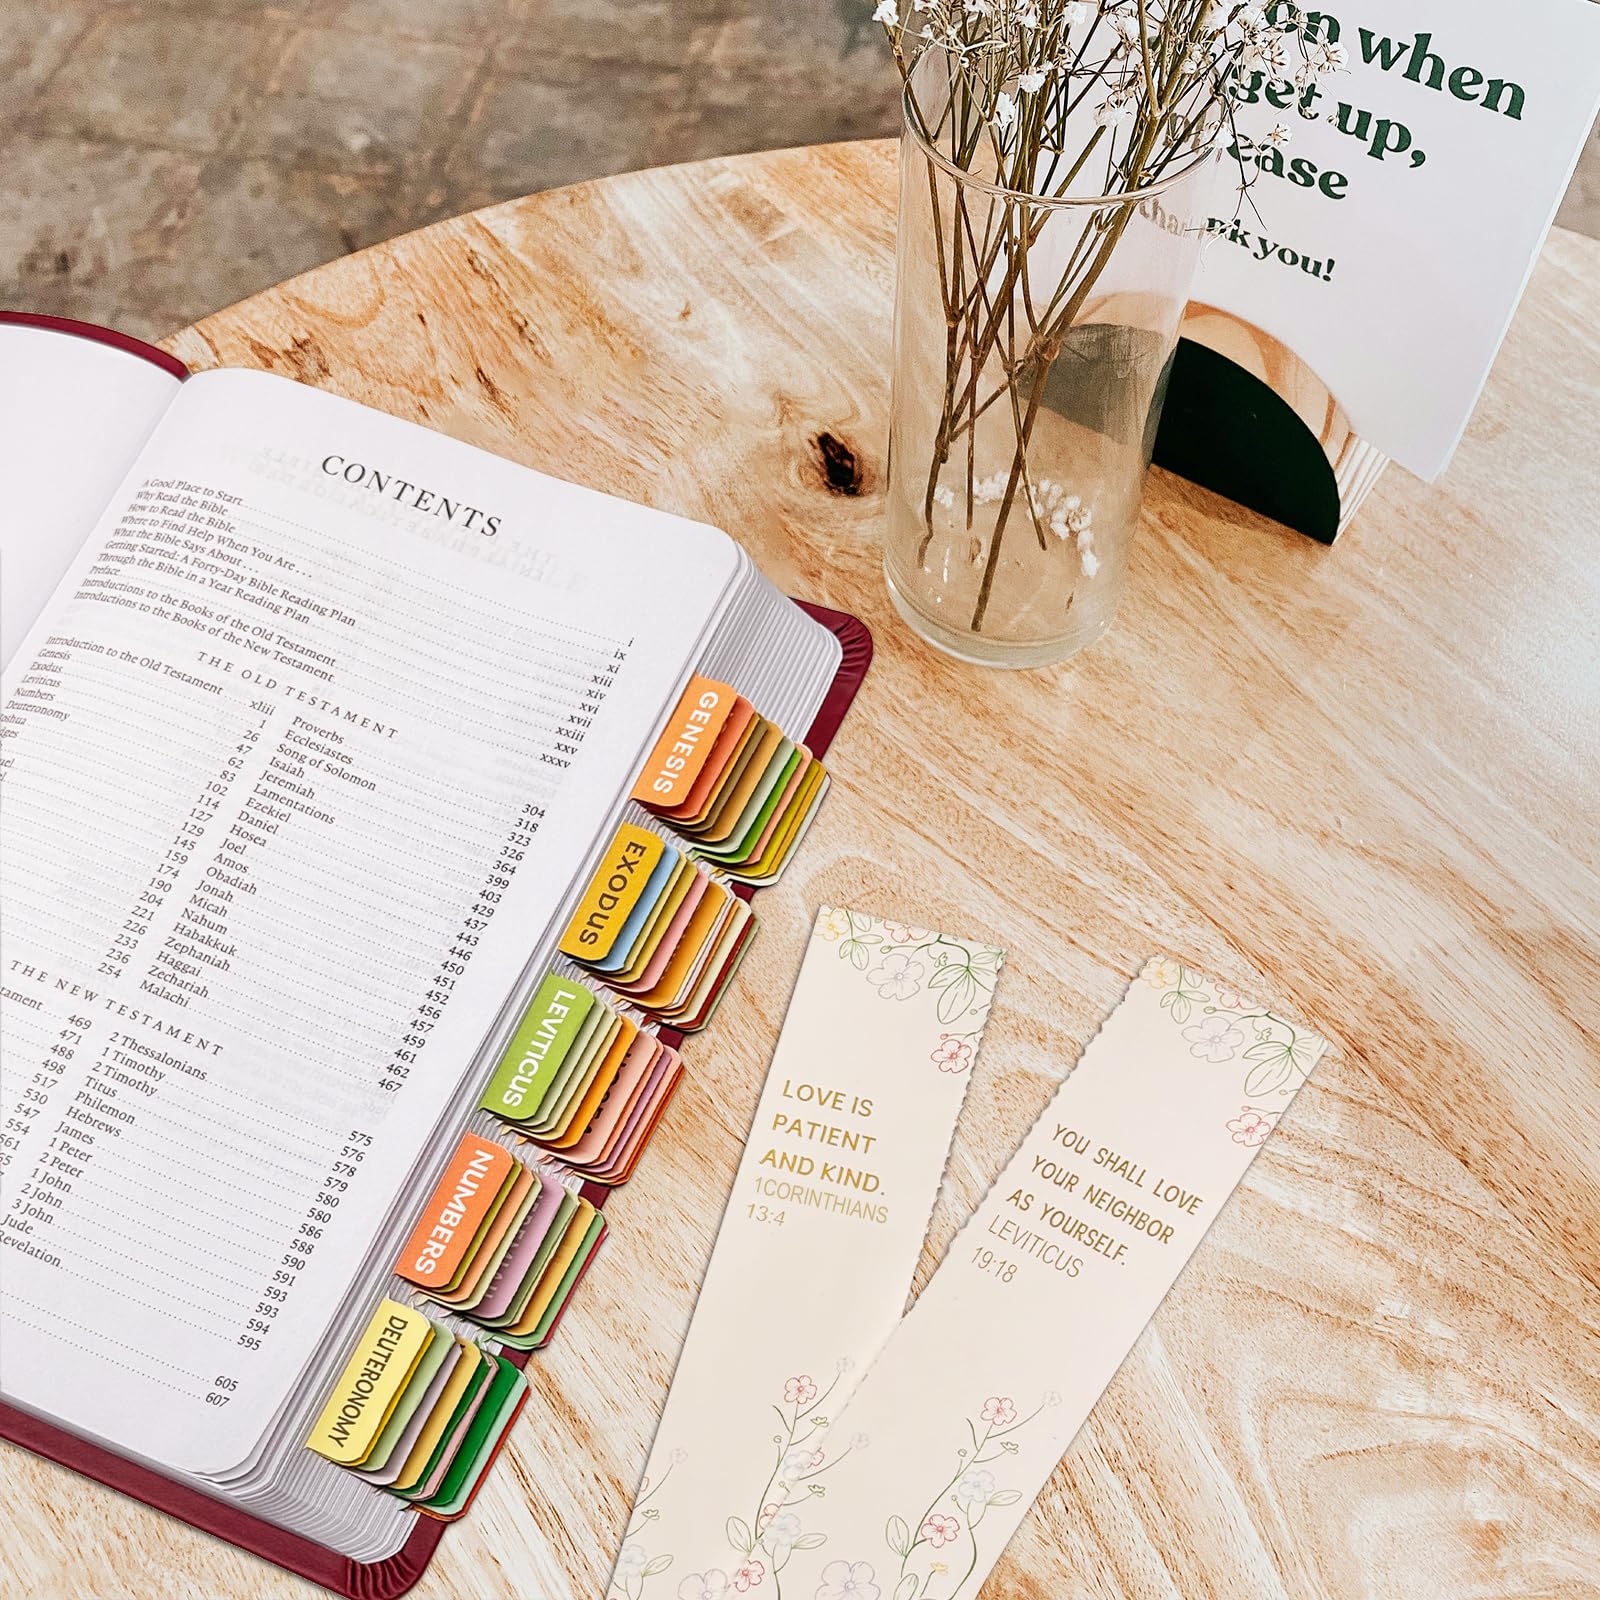 on when
get up,
ease
thank you!
CONTENTS
A Good Place to Start i
Why Read the Bible ix
How to Read the Bible xi
Where to Find Help When You Are . . . xiii
What the Bible Says About . . . xiv
Getting Started: A Forty-Day Bible Reading Plan xvi
Through the Bible in a Year Reading Plan xvii
Preface xxiii
Introductions to the Books of the Old Testament xxv
Introductions to the Books of the New Testament xxxv
THE OLD TESTAMENT
Introduction to the Old Testament xliii
Genesis 1
Exodus 26
Leviticus 47
Numbers 62
Deuteronomy 83
102
114
127
129
145
159
174
190
204
221
226
233
236
254
Proverbs 304
Ecclesiastes 318
Song of Solomon 323
Isaiah 326
Jeremiah 364
Lamentations 399
Ezekiel 403
Daniel 429
Hosea 437
Joel 443
Amos 446
Obadiah 450
Jonah 451
Micah 452
Nahum 456
Habakkuk 457
Zephaniah 459
Haggai 461
Zechariah 462
Malachi 467
THE NEW TESTAMENT
469
471
488
498
517
530
547
554
2 Thessalonians 575
1 Timothy 576
2 Timothy 578
Titus 579
Philemon 580
Hebrews 580
James 586
1 Peter 588
2 Peter 590
1 John 591
2 John 593
3 John 593
Jude 594
Revelation 595
605
607
GENESIS
EXODUS
LEVITICUS
NUMBERS
DEUTERONOMY
LOVE IS
PATIENT
AND KIND.
1CORINTHIANS
13:4
YOU SHALL LOVE
YOUR NEIGHBOR
AS YOURSELF.
LEVITICUS
19:18